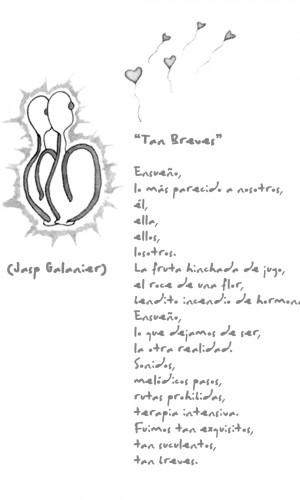 “Tan Breves”
Ensueño,
lo más parecido a nosotros,
él,
ella,
ellos,
losotros.
(Jasp Galanier)
La fruta hinchada de jugo,
el roce de una flor,
bendito incendio de hormona
Ensueño,
lo que dejamos de ser,
la otra realidad.
Sonidos,
melódicos pasos,
rutas prohibidas,
terapia intensiva.
Fuimos tan exquisitos,
tan suculentos,
tan breves.